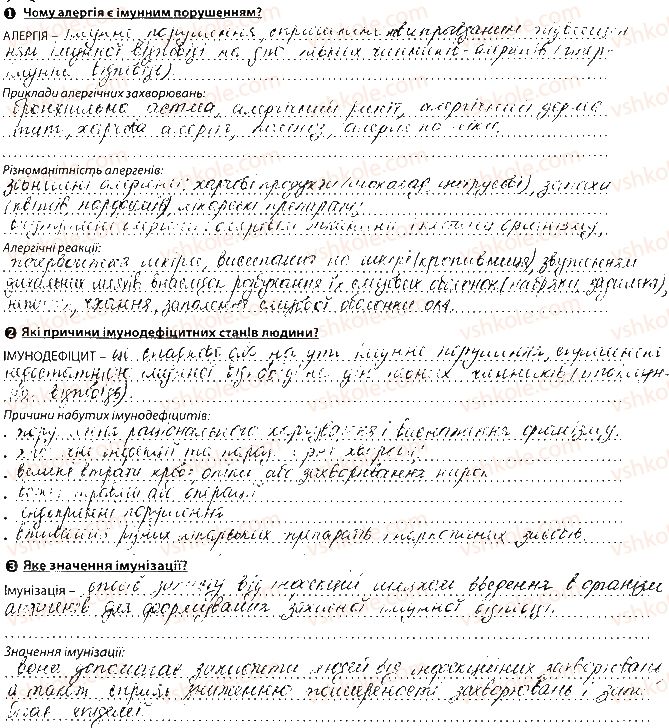 1 Чому алергія є імунним порушенням?
АЛЕРГІЯ – імунне порушення, спричинене
ням імунної відповіді на дію певних чинників-алергенів (гіпер-
імунна відповідь).
Приклади алергічних захворювань:
бронхіальна астма, алергічний риніт, алергічний дерма
тит, харчова алергія, поліноз, алергія на
Різноманітність алергенів:
зовнішні алергени: харчові продукти (шоколад, цитрусові), запахи
(квітів, парфумів), лікарські препарати;
клітини організму.
Алергічні реакції:
почервоніння шкіри, висипання на шкірі (кропивниця), звуження
дихальних шляхів внаслідок розбухання їх слизових оболонок (набряки, задишка),
чхання, запалення слизової оболонки
2 Які причини імунодефіцитних станів людини?
ІМУНОДЕФІЦИТ – це спадкове або набуте імунне порушення, спричинене
недостатністю імунної відповіді на дію певних чинників
відповідь).
Причини набутих імунодефіцитів:
• порушення раціонального харчування і виснаження організму.
• інфекції та паразитарні хвороби;
• великі втрати крові, опіки або захворювання нирок
• важкі травми або операції
• ендокринні порушення
• вживання різних лікарських препаратів і наркотичних засобів
3 Яке значення імунізації?
Імунізація – спосіб захисту від інфекцій шляхом введення в організм
антигенів для формування захисної імунної відповіді.
Значення імунізації:
вона допомагає захистити людей від інфекційних захворювань
а також сприяє зниженню поширеності захворювань і
епідемії
vshkole.com